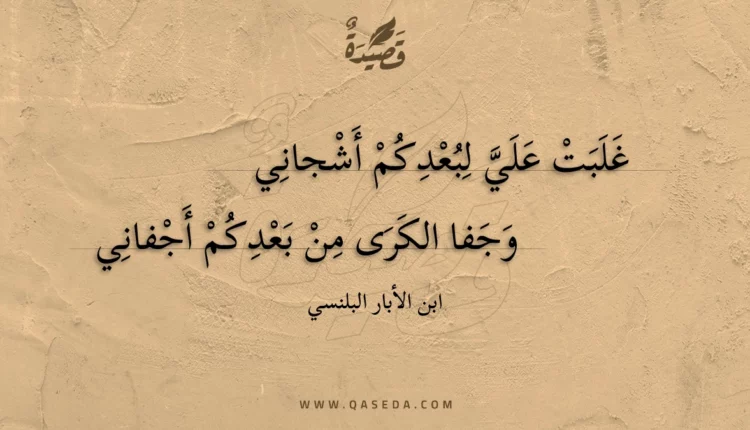 قَصِيْدَةٌ
غَلَبَتْ عَلَيَّ لِبُعْدِكُمْ أَشْجانِي
وَجَفا الكَرَى مِنْ بَعْدِكُمْ أَجْفانِي
ابن الأبار البلنسي
WWW.QASEDA.COM